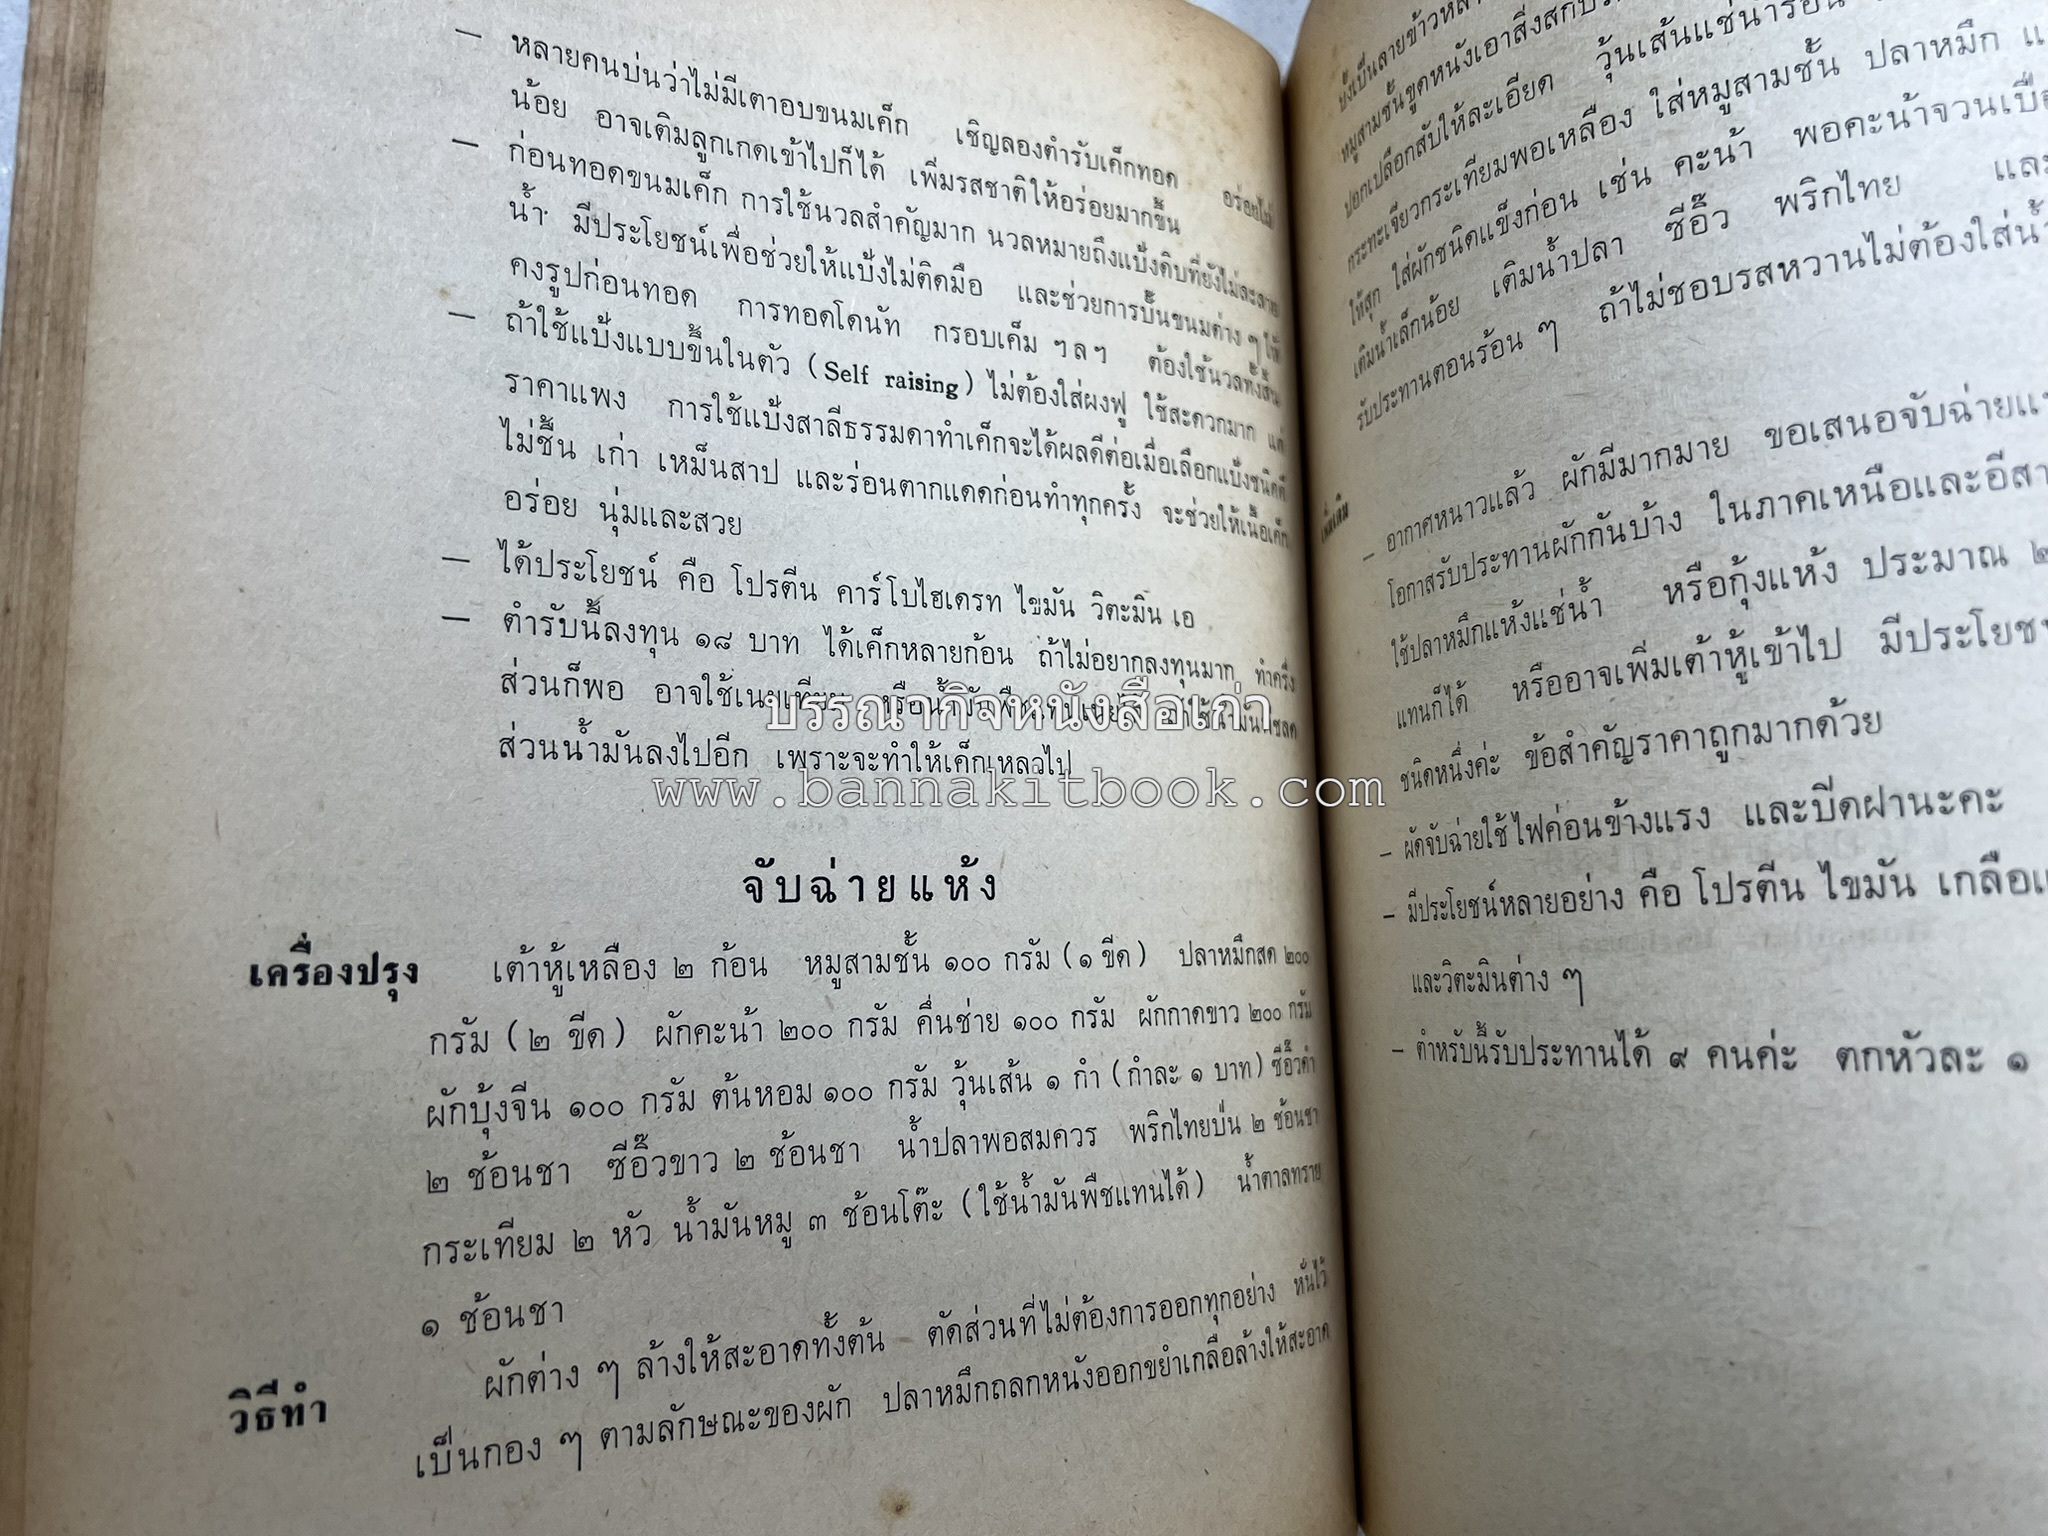 — หลายคนบ่นว่าไม่มีเตาอบขนมเค็ก เชิญลองตำรับเค็กทอด อร่อยไม่
น้อย อาจเติมลูกเกดเข้าไปก็ได้ เพิ่มรสชาติให้อร่อยมากขึ้น
— ก่อนทอดขนมเค็ก การใช้นวลสำคัญมาก นวลหมายถึงแป้งดิบที่ยังไม่ละลาย
น้ำ มีประโยชน์เพื่อช่วยให้แป้งไม่ติดมือ และช่วยการปั้นขนมต่าง ๆ ให้
คงรูปก่อนทอด การทอดโดนัท กรอบเค็ม ฯลฯ ต้องใช้นวลทั้งสิ้น
— ถ้าใช้แป้งแบบขึ้นในตัว (Self raising) ไม่ต้องใส่ผงฟู ใช้สะดวกมาก แต่
ราคาแพง การใช้แป้งสาลีธรรมดาทำเค็กจะได้ผลดีต่อเมื่อเลือกแป้งชนิดดี
ไม่ชื้น เก่า เหม็นสาป และร่อนตากแดดก่อนทำทุกครั้ง จะช่วยให้เนื้อเค็ก
อร่อย นุ่มและสวย
— ได้ประโยชน์ คือ โปรตีน คาร์โบไฮเดรท ไขมัน วิตะมิน เอ
— ตำรับนี้ลงทุน ๑๘ บาท ได้เค็กหลายก้อน ถ้าไม่อยากลงทุนมาก ทำครึ่ง
ส่วนก็พอ อาจใช้เนยเทียม หรือน้ำมันพืชแทนเนย
ส่วนน้ำมันลงไปอีก เพราะจะทำให้เค็กเหลวไป
บรรณากิจหนังสือเก่า
www.bannakitbook.com
จับฉ่ายแห้ง
เครื่องปรุง เต้าหู้เหลือง ๒ ก้อน หมูสามชั้น ๑๐๐ กรัม (๑ ขีด) ปลาหมึกสด ๒๐๐
กรัม (๒ ขีด) ผักคะน้า ๒๐๐ กรัม คึ่นช่าย ๑๐๐ กรัม ผักกาดขาว ๒๐๐ กรัม
ผักบุ้งจีน ๑๐๐ กรัม ต้นหอม ๑๐๐ กรัม วุ้นเส้น ๑ กำ (กำละ ๑ บาท) ซีอิ๊วดำ
๒ ช้อนชา ซีอิ๊วขาว ๒ ช้อนชา น้ำปลาพอสมควร พริกไทยป่น ๒ ช้อนชา
กระเทียม ๒ หัว น้ำมันหมู ๓ ช้อนโต๊ะ (ใช้น้ำมันพืชแทนได้) น้ำตาลทราย
๑ ช้อนชา
วิธีทำ ผักต่าง ๆ ล้างให้สะอาดทั้งต้น ตัดส่วนที่ไม่ต้องการออกทุกอย่าง หั่นไว้
เป็นกอง ๆ ตามลักษณะของผัก ปลาหมึกถลกหนังออกขยำเกลือล้างให้สะอาด
บั้งเป็นลายข้าวหลาม
หมูสามชั้นขูดหนังเอาสิ่งสกปรก
ปอกเปลือกสับให้ละเอียด วุ้นเส้นแช่น้ำร้อน
กระทะเจียวกระเทียมพอเหลือง ใส่หมูสามชั้น ปลาหมึก
ให้สุก ใส่ผักชนิดแข็งก่อน เช่น คะน้า พอคะน้าจวนเปื่อ
เติมน้ำเล็กน้อย เติมน้ำปลา ซีอิ๊ว พริกไทย และ
รับประทานตอนร้อน ๆ ถ้าไม่ชอบรสหวานไม่ต้องใส่น้ำ
เพิ่มเติม
– อากาศหนาวแล้ว ผักมีมากมาย ขอเสนอจับฉ่ายแห
โอกาสรับประทานผักกันบ้าง ในภาคเหนือและอีสา
ใช้ปลาหมึกแห้งแช่น้ำ หรือกุ้งแห้ง ประมาณ ๒
แทนก็ได้ หรืออาจเพิ่มเต้าหู้เข้าไป มีประโยช
ชนิดหนึ่งค่ะ ข้อสำคัญราคาถูกมากด้วย
– ผัดจับฉ่ายใช้ไฟค่อนข้างแรง และปิดฝานะคะ
– มีประโยชน์หลายอย่าง คือ โปรตีน ไขมัน เกลือแ
และวิตะมินต่าง ๆ
– ตำหรับนี้รับประทานได้ ๙ คนค่ะ ตกหัวละ ๑